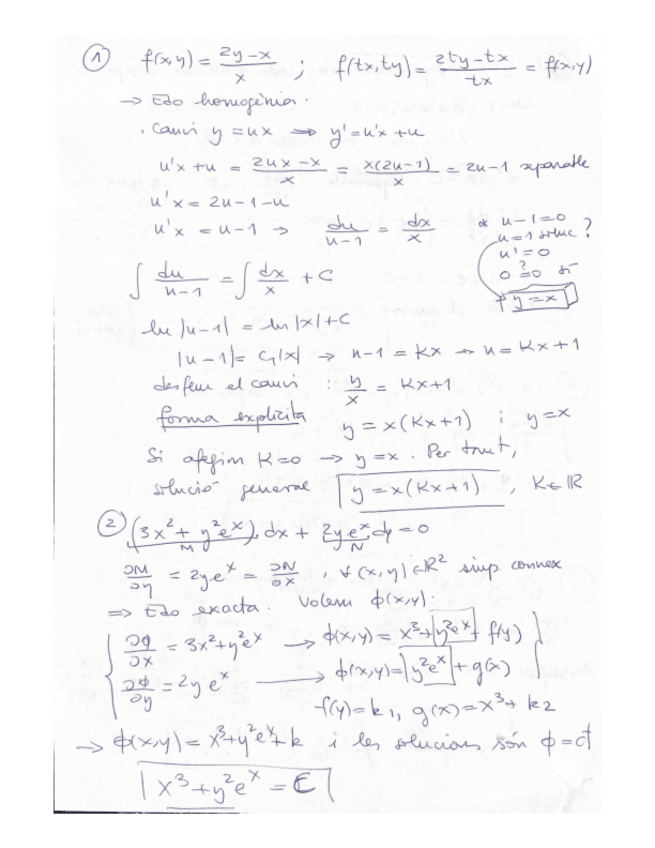 ① f(x,y) = (2y-x)/x ; f(tx,ty) = (2ty-tx)/(tx) = f(x,y)
→ Edo homogènia.
· Canvi y = ux ⟹ y' = u'x + u
u'x + u = (2ux-x)/x = x(2u-1)/x = 2u-1 separable
u'x = 2u-1-u
u'x = u-1 → du/(u-1) = dx/x
* u-1=0
u=1 soluc?
u'=0
0 =? 0 sí
y=x
∫ du/(u-1) = ∫ dx/x + C
ln|u-1| = ln|x| + C
|u-1| = C₁|x| → u-1 = Kx → u = Kx+1
desfem el canvi : y/x = Kx+1
forma explícita y = x(Kx+1) i y=x
Si afegim K=0 → y=x. Per tant,
solució general y = x(Kx+1) , K∈ℝ
② (3x²+y²eˣ) dx + 2yeˣ dy = 0
M N
∂M/∂y = 2yeˣ = ∂N/∂x , ∀(x,y)∈ℝ² simp. connex
⟹ Edo exacta. Volem ϕ(x,y):
∂ϕ/∂x = 3x²+y²eˣ → ϕ(x,y) = x³+y²eˣ+f(y)
∂ϕ/∂y = 2yeˣ → ϕ(x,y) = y²eˣ+g(x)
f(y)=k₁, g(x)=x³+k₂
→ ϕ(x,y) = x³+y²eˣ+k i les solucions són ϕ=ct
x³+y²eˣ = C